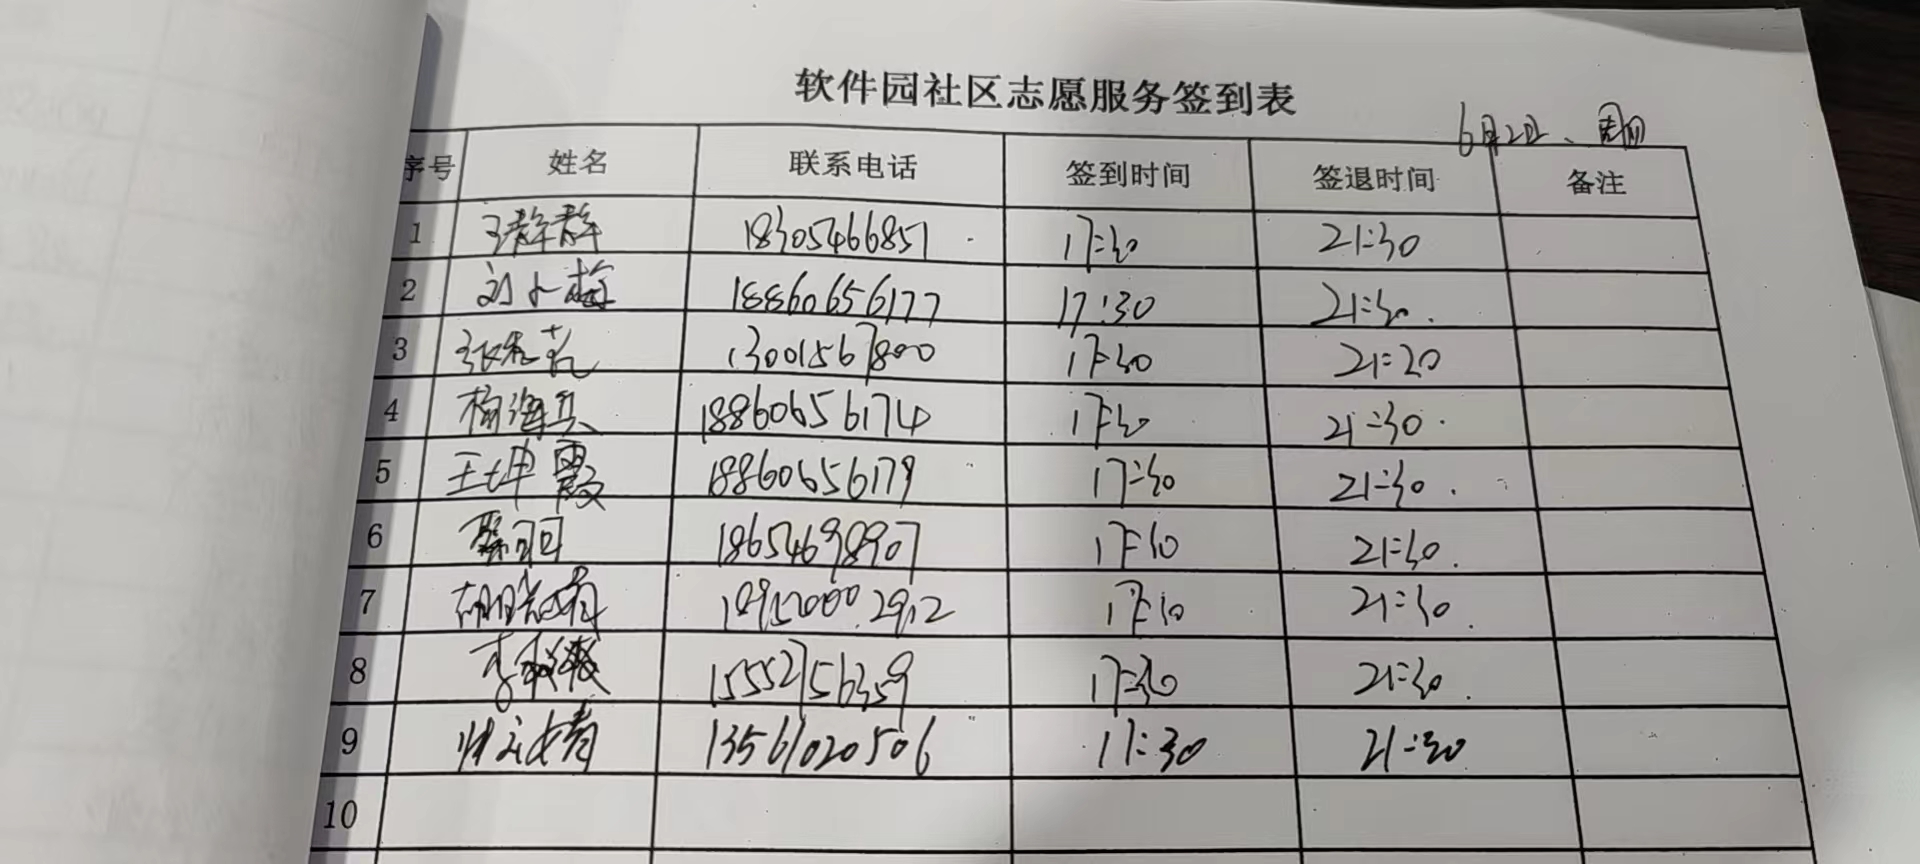 软件园社区志愿服务签到表
6月2日、周四
序号 姓名 联系电话 签到时间 签退时间 备注
1 王群群 18305466851 17:30 21:30
2 刘小梅 18860656177 17:30 21:30
3 13001567800 17:30 21:20
4 杨海兵 18860656174 17:30 21:30
5 王坤霞 18860656179 17:30 21:30
6 18654698907 17:30 21:30
7 胡晓莉 17:30 21:30
8 李 15552756359 17:30 21:30
9 13561020506 17:30 21:30
10